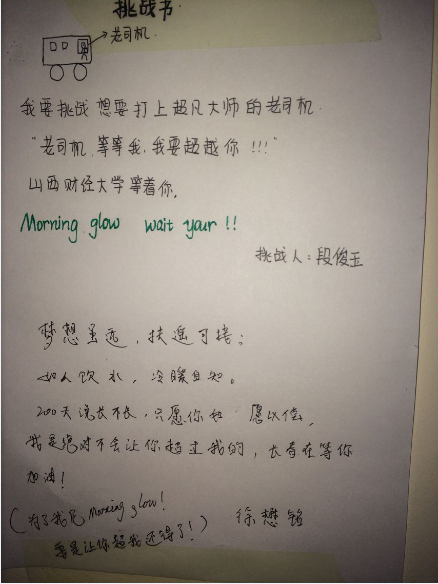 挑战书.
老司机.
我要挑战 想要打上超凡大师的老司机.
"老司机,等等我,我要超越你!!!"
山西财经大学等着你.
Morning glow wait your !!
挑战人:段俊玉
梦想虽远,扶遥可接;
如人饮水,冷暖自知。
200天说长不长,只愿你 愿以偿,
我是绝对不会让你超过我的,长 在等你
加油!
(为了我 Morning glow!
要是让你超我还得了!) 徐懋铭